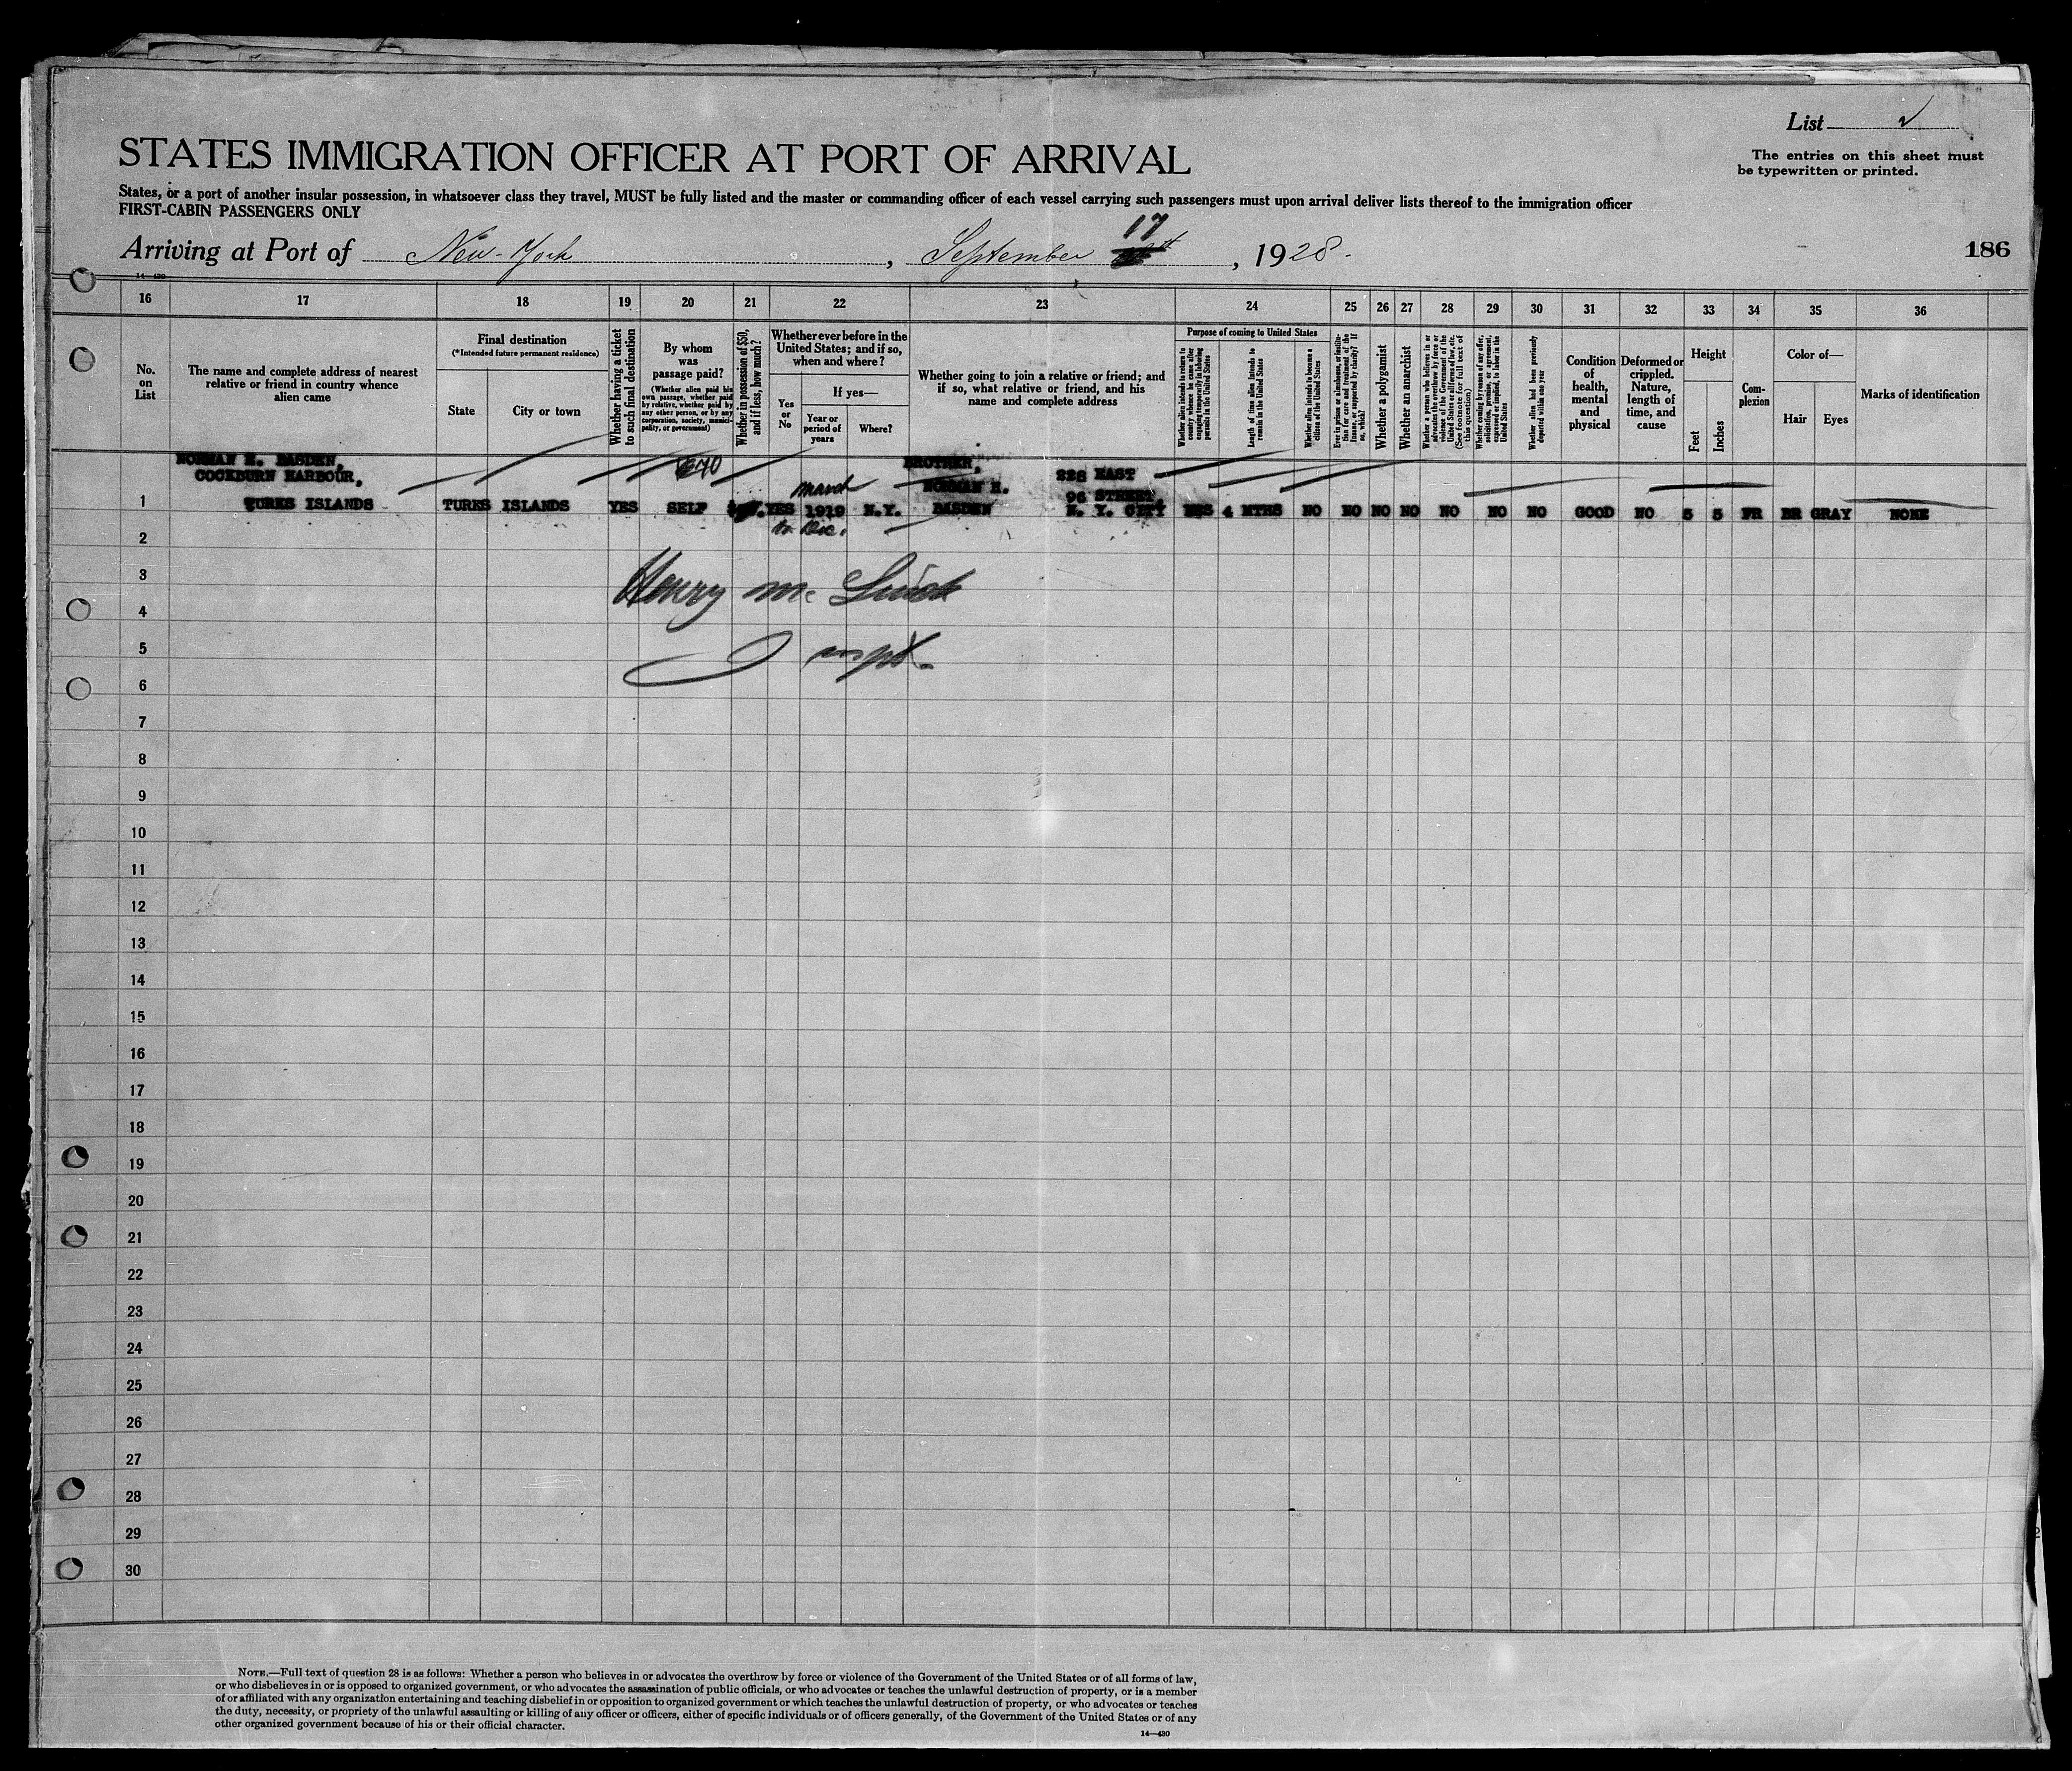 List
The entries on this sheet must
be typewritten or printed.
STATES IMMIGRATION OFFICER AT PORT OF ARRIVAL
States, or a port of another insular possession, in whatsoever class they travel, MUST be fully listed and the master or commanding officer of each vessel carrying such passengers must upon arrival deliver lists thereof to the immigration officer
FIRST-CABIN PASSENGERS ONLY
Arriving at Port of New-York, September 17, 1928.
186
14—430
16 17 18 19 20 21 22 23 24 25 26 27 28 29 30 31 32 33 34 35 36
No. on List
The name and complete address of nearest relative or friend in country whence alien came
Final destination
(*Intended future permanent residence)
State
City or town
Whether having a ticket to such final destination
By whom was passage paid?
(Whether alien paid his own passage, whether paid by relative, whether paid by any other person, or by any corporation, society, munici-pality, or government)
Whether in possession of $50, and if less, how much?
Whether ever before in the United States; and if so, when and where?
Yes or No
If yes—
Year or period of years
Where?
Whether going to join a relative or friend; and if so, what relative or friend, and his name and complete address
Purpose of coming to United States
Whether alien intends to return to country whence he came after engaging temporarily in laboring pursuits in the United States
Length of time alien intends to remain in the United States
Whether alien intends to become a citizen of the United States
Ever in prison or almshouse, or institu-tion for care and treatment of the insane, or supported by charity? If so, which?
Whether a polygamist
Whether an anarchist
Whether a person who believes in or advocates the overthrow by force or violence of the Government of the United States or all forms of law, etc. (See footnote for full text of this question)
Whether coming by reason of any offer, solicitation, promise, or agreement, expressed or implied, to labor in the United States
Whether alien had been previously deported within one year
Condition of health, mental and physical
Deformed or crippled. Nature, length of time, and cause
Height
Feet
Inches
Com-plexion
Color of—
Hair
Eyes
Marks of identification
NORMAN H. BASDEN,
COCKBURN HARBOUR,
$70
BROTHER,
228 EAST
March
NORMAN H.
96 STREET,
1 TURKS ISLANDS TURKS ISLANDS YES SELF YES 1919 N.Y. BASDEN N. Y. CITY YES 4 MTHS NO NO NO NO NO NO NO GOOD NO 5 5 FR BR GRAY NONE
to Dec.
2
3
Henry Mc
4
5
Inspt.
6
7
8
9
10
11
12
13
14
15
16
17
18
19
20
21
22
23
24
25
26
27
28
29
30
NOTE.—Full text of question 28 is as follows: Whether a person who believes in or advocates the overthrow by force or violence of the Government of the United States or of all forms of law,
or who disbelieves in or is opposed to organized government, or who advocates the assassination of public officials, or who advocates or teaches the unlawful destruction of property, or is a member
of or affiliated with any organization entertaining and teaching disbelief in or opposition to organized government or which teaches the unlawful destruction of property, or who advocates or teaches
the duty, necessity, or propriety of the unlawful assaulting or killing of any officer or officers, either of specific individuals or of officers generally, of the Government of the United States or of any
other organized government because of his or their official character.
14—430